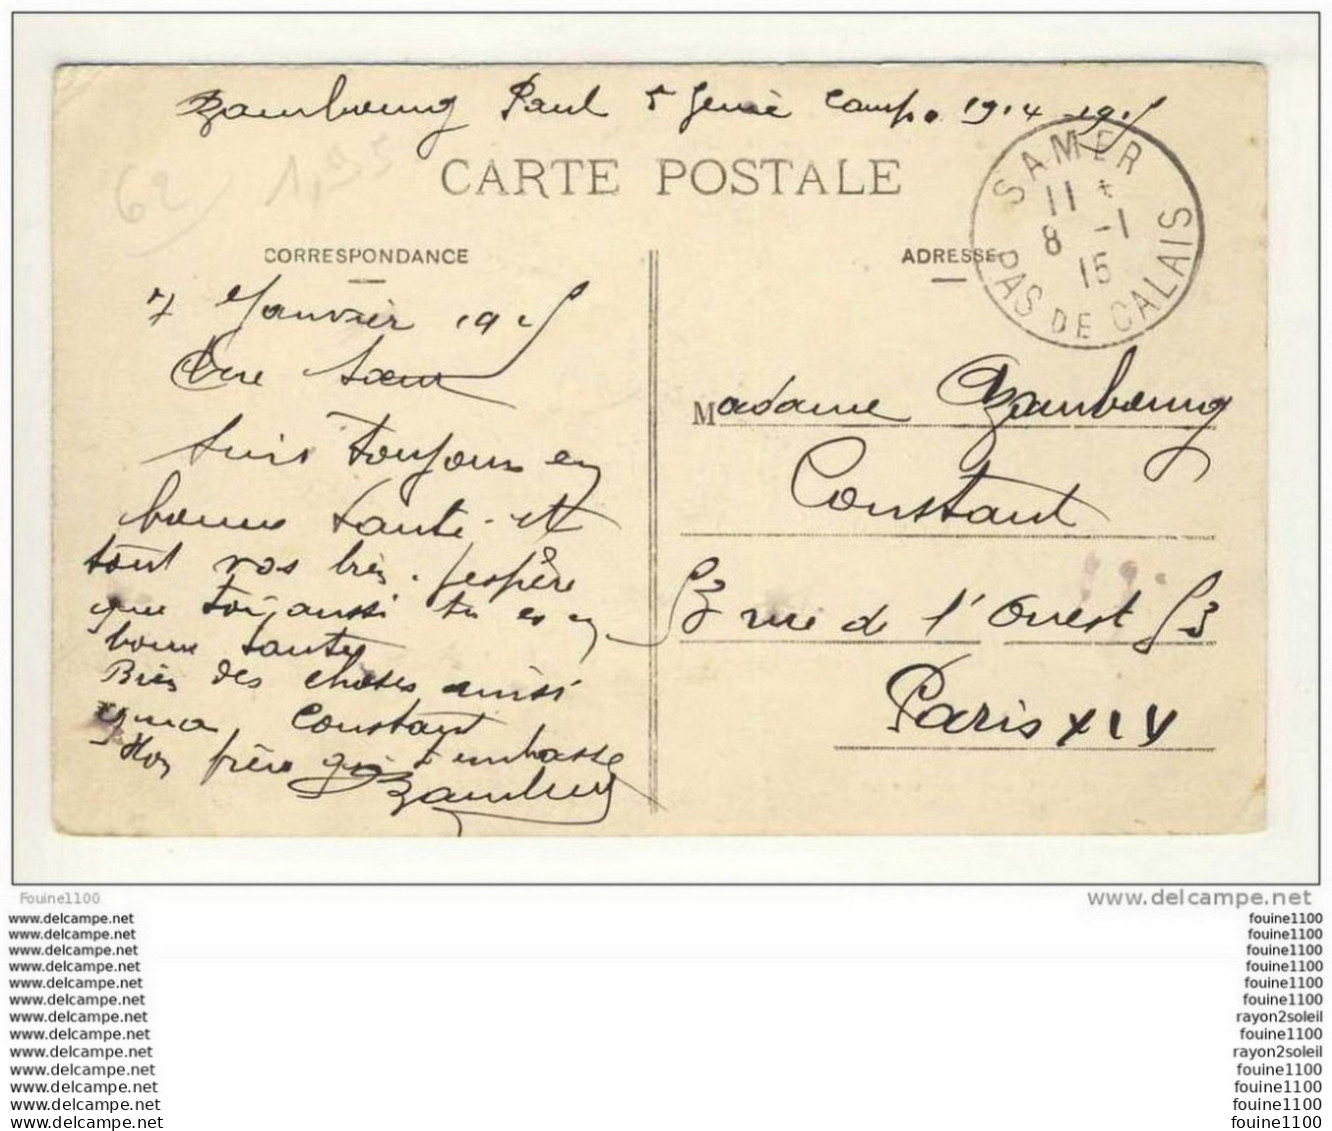 Paul 5 Genie Camp. 1914-1915
CARTE POSTALE
62 1,95
SAMER
11
8 -1
15
PAS DE CALAIS
CORRESPONDANCE
7 Janvier 1915
Chere Sœur
suis toujours en
bonne sante et
tout vos bien. jespère
que toi aussi tu es en
bonne sante
Bien des choses ainsi
qua Constant
Ton frère qui t'embasse
ADRESSE
Madame
Constant
53 rue de l'Ouest 53
Paris XIV
Fouine1100
www.delcampe.net
www.delcampe.net
www.delcampe.net
www.delcampe.net
www.delcampe.net
www.delcampe.net
www.delcampe.net
www.delcampe.net
www.delcampe.net
www.delcampe.net
www.delcampe.net
www.delcampe.net
www.delcampe.net
www.delcampe.net
fouine1100
fouine1100
fouine1100
fouine1100
fouine1100
fouine1100
rayon2soleil
fouine1100
rayon2soleil
fouine1100
fouine1100
fouine1100
fouine1100